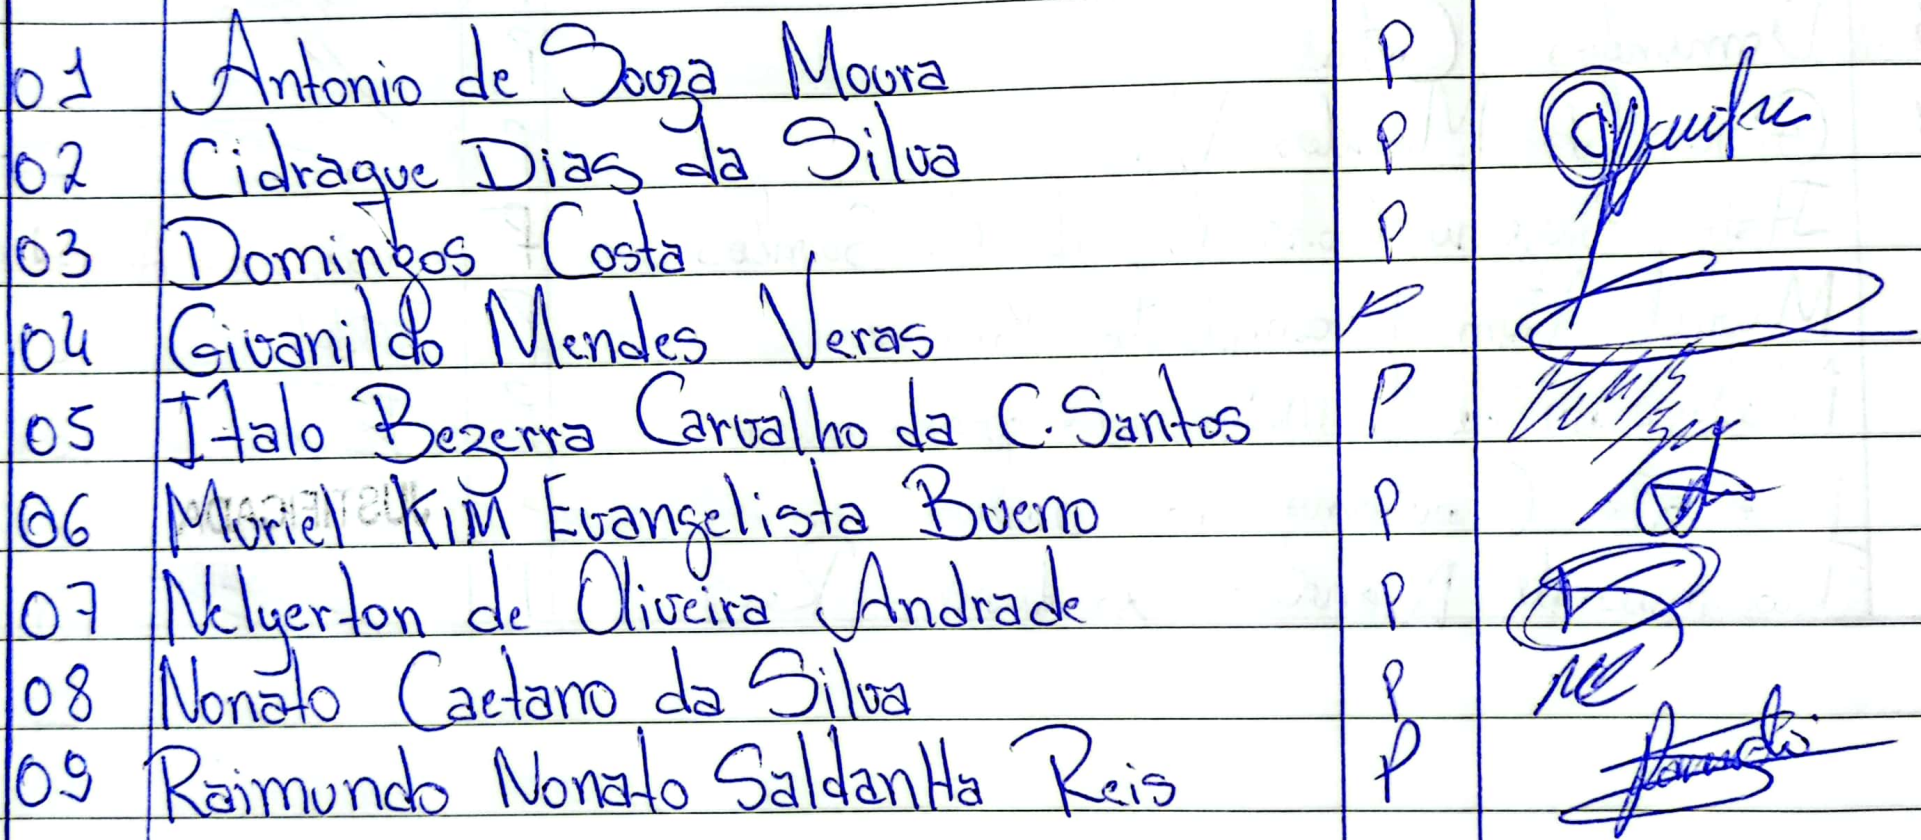 01 Antonio de Souza Moura P
02 Cidraque Dias da Silva P
03 Domingos Costa P
04 Givanildo Mendes Veras P
05 Italo Bezerra Carvalho da C. Santos P
06 Muriel Kim Evangelista Bueno P
07 Nelyerton de Oliveira Andrade P
08 Nonato Caetano da Silva P
09 Raimundo Nonato SaldanHa Reis P